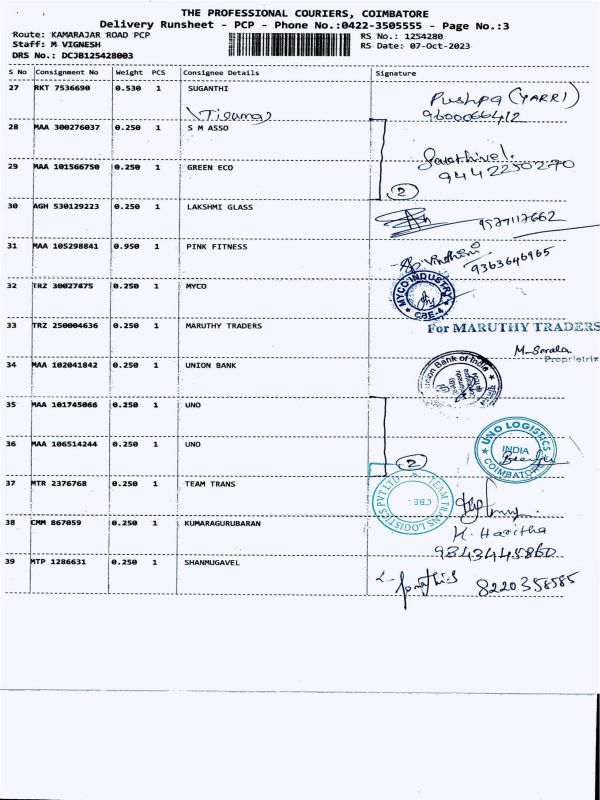 THE PROFESSIONAL COURIERS, COIMBATORE
Delivery Runsheet - PCP - Phone No.:0422-3505555 - Page No.:3
Route: KAMARAJAR ROAD PCP RS No.: 1254280
Staff: M VIGNESH RS Date: 07-Oct-2023
DRS No.: DCJB125428003
S No Consignment No Weight PCS Consignee Details Signature
27 RKT 7536690 0.530 1 SUGANTHI
Pushpa (YARRI)
9600066412
28 MAA 300276037 0.250 1 S M ASSO
29 MAA 101566750 0.250 1 GREEN ECO
9442250270
2
30 AGH 530129223 0.250 1 LAKSHMI GLASS
9577117662
31 MAA 105298841 0.950 1 PINK FITNESS
9363646965
32 TRZ 30027475 0.250 1 MYCO
MYCO INDUSTRY
CBE-4
33 TRZ 250004636 0.250 1 MARUTHY TRADERS
For MARUTHY TRADERS
M. Sorala
Proprietrix
34 MAA 102041842 0.250 1 UNION BANK
Union Bank of India
35 MAA 101745066 0.250 1 UNO
36 MAA 106514244 0.250 1 UNO
UNO LOGISTICS
INDIA
COIMBATORE
2
37 MTR 2376768 0.250 1 TEAM TRANS
TEAM TRANS LOGISTICS PVT LTD
CBE
38 CMM 867059 0.250 1 KUMARAGURUBARAN
K. Haritha
9843445860
39 MTP 1286631 0.250 1 SHANMUGAVEL
8220358585